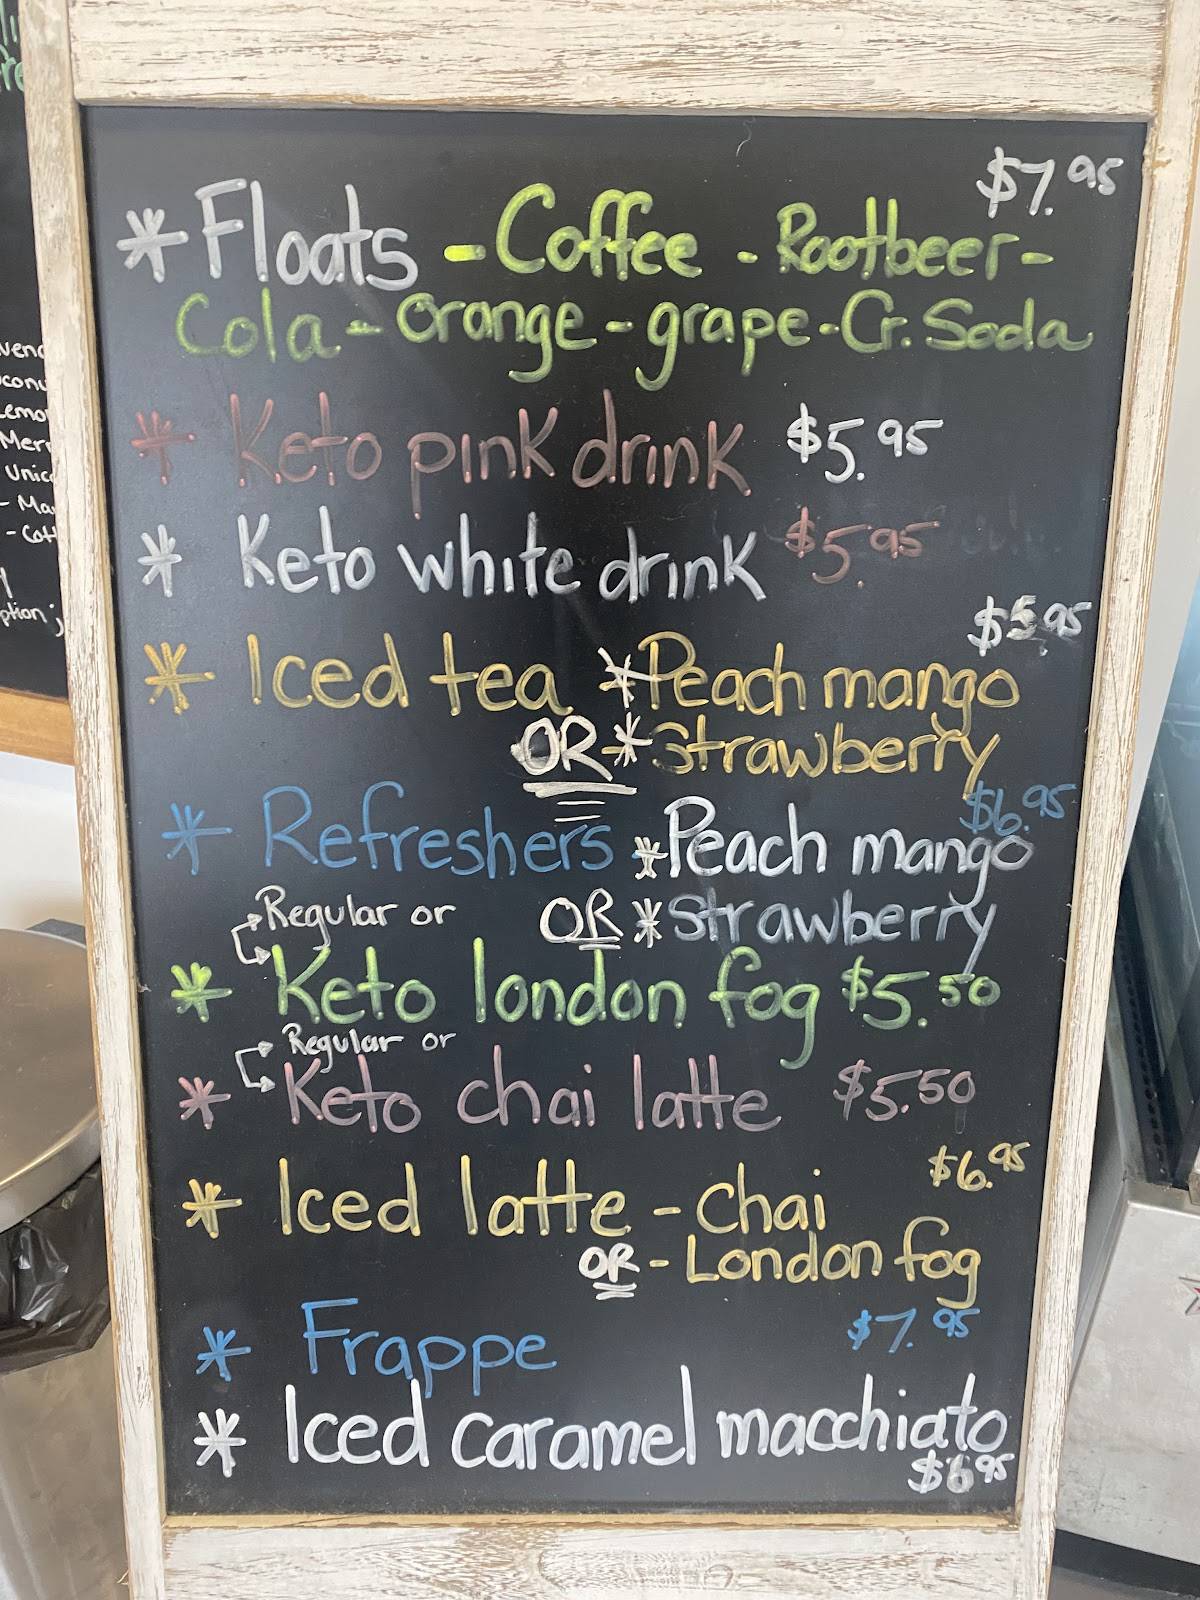 $7.95
* Floats - Coffee - Rootbeer -
Cola - Orange - grape - Cr. Soda
* Keto pink drink $5.95
* Keto white drink $5.95
$5.95
* Iced tea * Peach mango
OR * Strawberry
$6.95
* Refreshers * Peach mango
Regular or OR * Strawberry
* Keto london fog $5.50
Regular or
* Keto chai latte $5.50
$6.95
* Iced latte - Chai
OR - London fog
* Frappe $7.95
* Iced caramel macchiato
$6.95